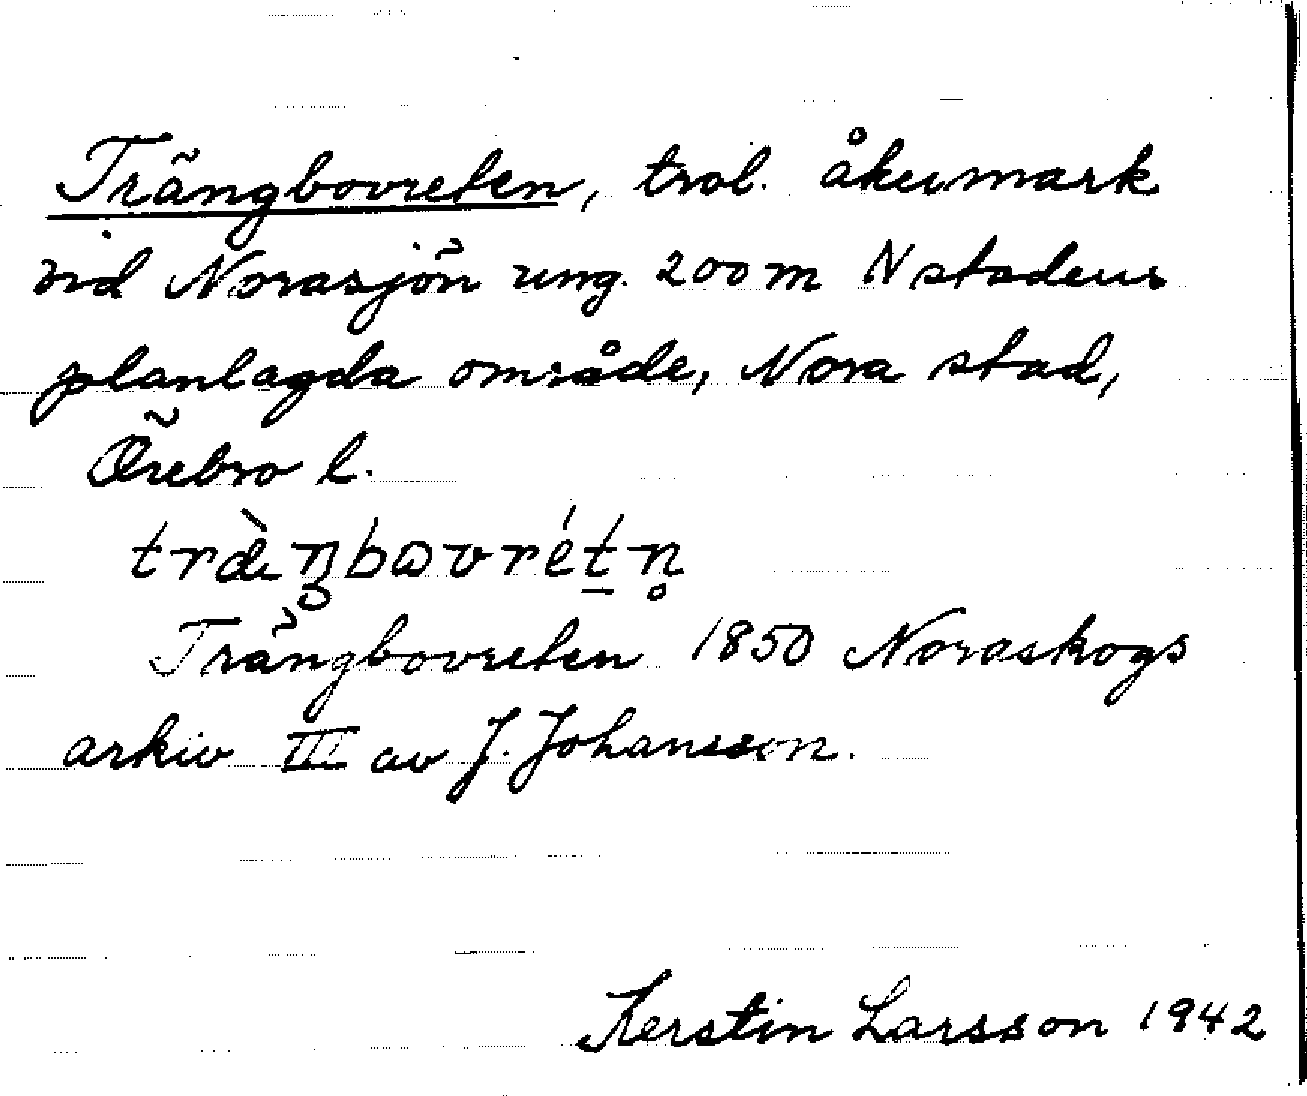 Trängbovreten, trol. åkermark
vid Norasjön ung. 200 m N stadens
planlagda område, Nora stad,
Örebro l.
træ̀ŋbɷvrét̠n̥
Trängbovreten 1850 Noraskogs
arkiv III av J. Johansson.
Kerstin Larsson 1942